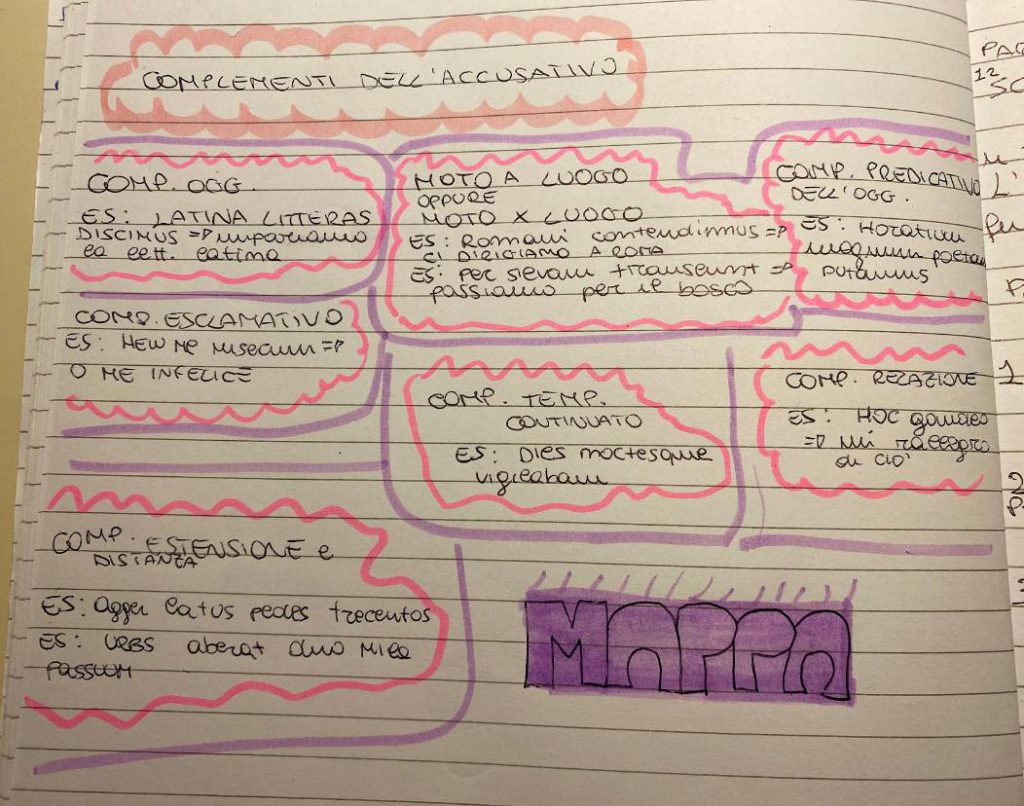 COMPLEMENTI DELL'ACCUSATIVO
COMP. OGG.
ES: LATINA LITTERAS
DISCIMUS => impariamo
la lett. latina
MOTO A LUOGO
OPPURE
MOTO X LUOGO
ES: Romani contendimus =>
CI DIRIGIAMO A ROMA
ES: per silvam transeunt =>
passiamo per il bosco
COMP. PREDICATIVO
DELL'OGG.
ES: Horatium
magnum poetam
putamus
COMP. ESCLAMATIVO
ES: HEW ME miserum =>
O ME INFELICE
COMP. TEMP.
CONTINUATO
ES: DIES noctesque
vigilabam
COMP. RELAZIONE
ES: HOC gaudeo
=> mi rallegro
di CIO'
COMP. ESTENSIONE e
DISTANZA
ES: agger latus pedes trecentos
ES: URBS aberat duo milia
passuum
MAPPA
PAG
12
L'
1
2